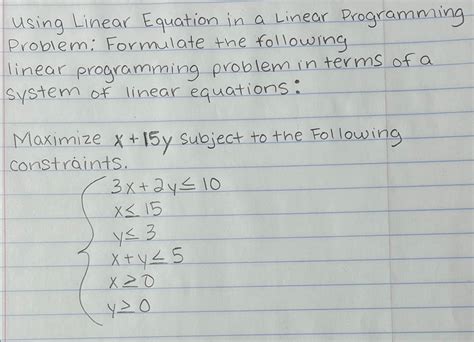 using Linear Equation in a Linear Programming
Problem: Formulate the following
linear programming problem in terms of a
system of linear equations:
Maximize x + 15y subject to the Following
constraints.
3x + 2y ≤ 10
x ≤ 15
y ≤ 3
x + y ≤ 5
x ≥ 0
y ≥ 0